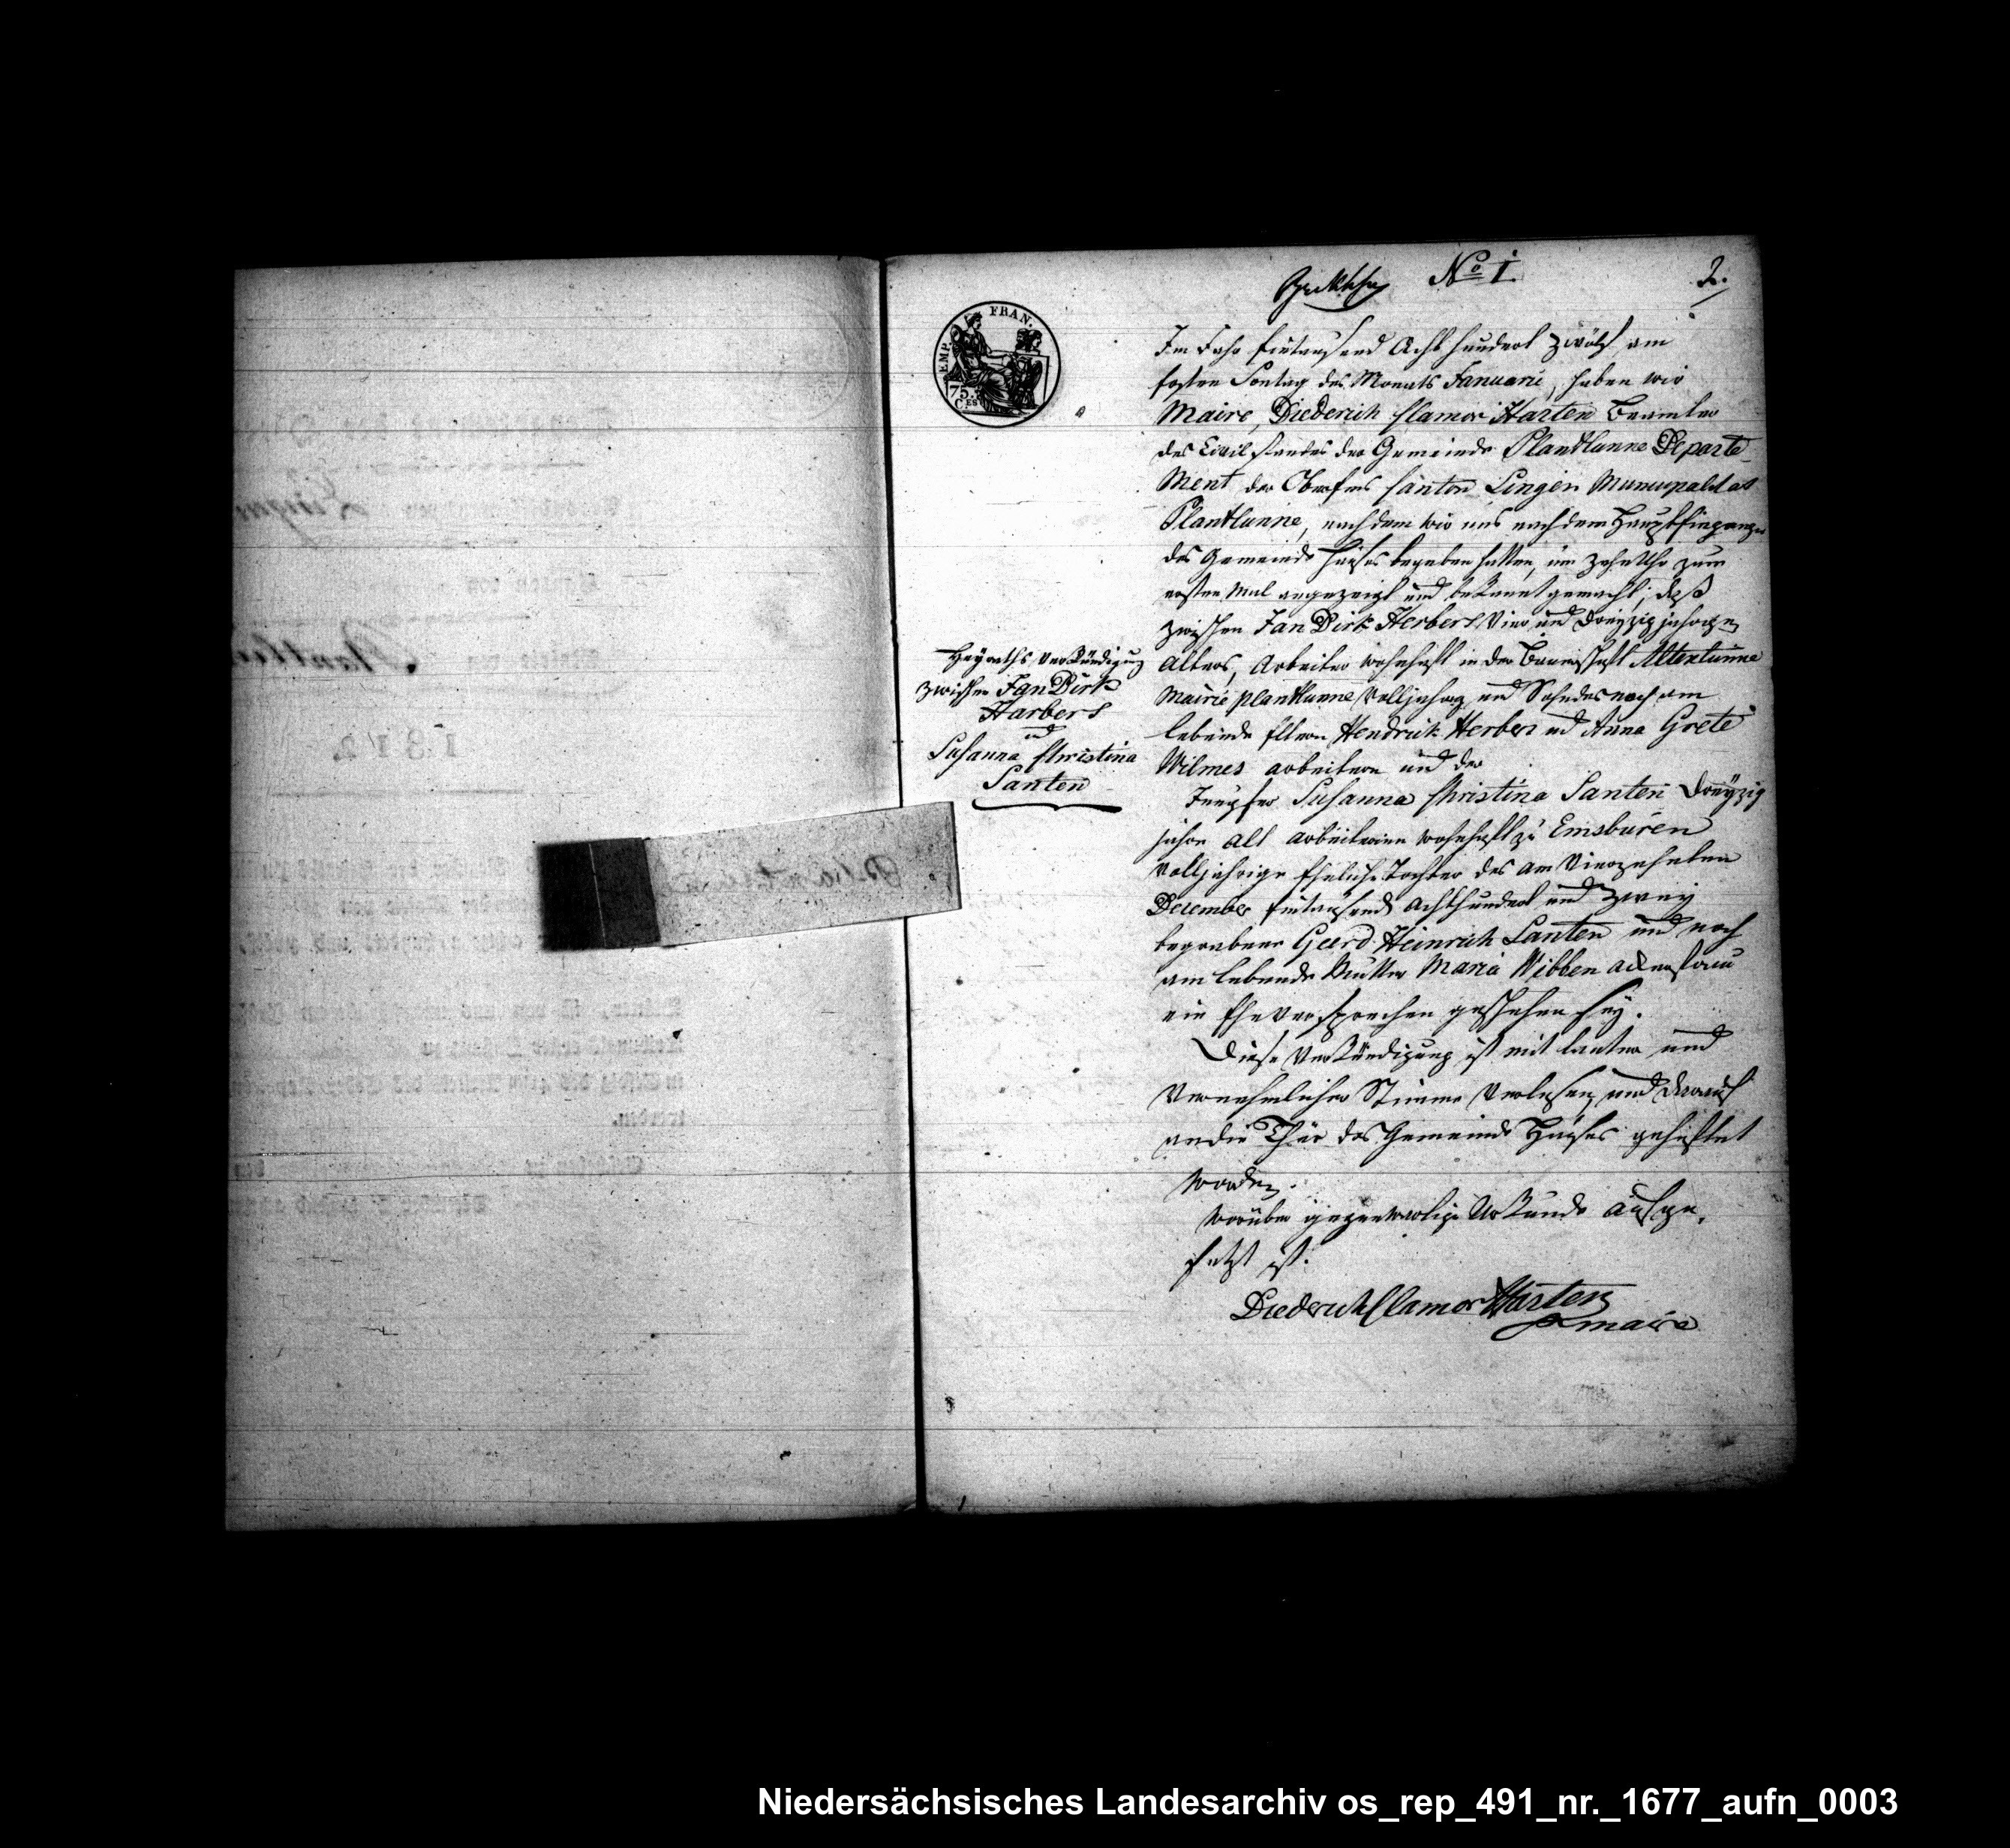 No 1.
2.
EMP. FRAN.
75.
C.ES
Im Jahr Eintausend Acht hundert zwölf am
Ersten Sontag des Monats Januarii, haben wir
Maire, Diederich Clamor Harten Beamter
des Civil standes der Gemeinde Plantlunne Departe-
Ment der Oberems Canton Lingen Municipalitat
Plantlunne, nach dem wir uns nach dem Haupt Eingange
des Gemeinde Hauses begeben hatten, um zehn Uhr zum
ersten Mal angezeigt und bekannt gemacht; daß
zwischen Jan Dirk Herbers Vier und Dreyzig jahrigen
Alters, Arbeiter wohnhaft in der Bauerschaft Altenlunne
Mairie plantlunne Volljahrig und Sohn des noch am
lebende Eltern Hendrick Herbers und Anna Grete
Wilmes arbeitern und der
Jungfer Susanna Christina Santen Dreyzig
jahre alt arbeiterinn wohnhaft zu Emsburen
Volljahrige Eheliche Tochter des am Vierzehnten
December Eintausend Achthundert und Zwey
begrabene Geerd Heinrich Santen und noch
am lebende Mutter Maria Wibben
ein Eheversprechen geschehen sey.
Diese Verkündigung ist mit lauter und
Vernehmlicher Stimme Verlesen, und darauf
an die Thür des Gemeinde Hauses geheftet
worden.
worüber gegenwartige Urkunde aufge,
setzt ist.
Diederich Clamor Harten
maire
Heyraths Verkündigung
zwischen Jan Dirk
Harbers
und
Susanna Christina
Santen
Niedersächsisches Landesarchiv os_rep_491_nr._1677_aufn_0003